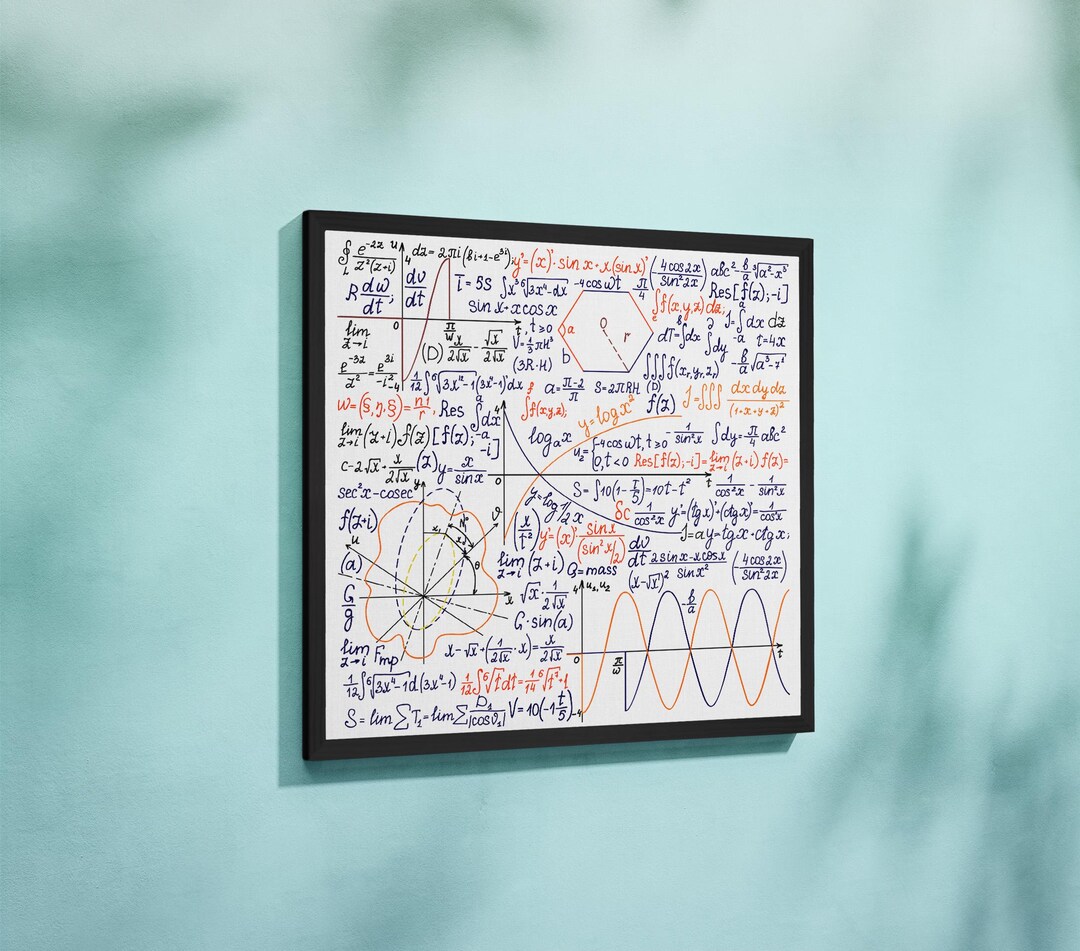 ∮_L e^-2z / z²(z+i) dz = 2πi(8i+1-e^3i);
u
4
y'=(x)'·sinx+x(sinx)'
(4cos2x / sin²2x)
abc² - b/a ∛a²-x³
R dw/dt;
dv/dt
T=5S
∫x³ ⁶√3x⁴-dx
-4cosωt
π/4
Res[f(z);-i]
sinx+xcosx
∫f(x,y,z)dz;
J=∫dx dz
0
π/w
t
t≥0
a
O
r
dT=∫dx
∫dy
-a
t=4x
lim z→i
(D) x/2√x - √x/2√x
V=1/3πH³
(3R·H)
b
∫∫∫f(x,y,z,)
(D)
-b/a √a³-7⁴
e^-3z/z² = e^3i/-i²
-4
1/12 ∫⁶√3x¹²-1(3x⁴-1)'dx
a=π-2/π
S=2πRH
J=∫∫∫ dxdydz/(1+x+y+z)²
w=(§,η,§)=n1/r,
Res
∫dx
a
-a
4
∫f(xyz);
y=logx²
f(z)
lim z→i (z+i)f(z)
[f(z);-i]
logₐx
u₂={-4cosωt, t≥0
0, t<0
-1/sin²x
∫dy=π/4 abc²
Res[f(z);-i]=lim z→i (z+i)f(z)=
c-2√x+x/2√x
(z)
y=x/sinx
0
t
sec²x-cosec²
y
S=∫10(1-t/5)=10t-t²
1/cos²x - 1/sin²x
f(z+i)
y=log1/2x
δc
1/cos²x
y'=(tgx)'+(ctgx)'=1/cos²x
u
ϑ
(x/t²)
y'=(x)'·sinx/(sin²x/2)
J=ay=tgx+ctgx;
(a)
θ
lim z→i (z+i)
Q=mass
dv/dt
2sinx-xcosx/sin x²
(x-√x)²
(4cos2x / sin²2x)
G/g
x
√x·1/2√x
4
u₁,u₂
b/a
G·sin(a)
lim z→i Fmp
x-√x+(1/2√x·x)=x/2√x
0
π/w
t
1/12 ∫⁶√3x⁴-1d(3x⁴-1)
1/12 ∫⁶√t dt=1/14 ⁶√t⁷+1
S=lim∑T₁=lim∑D₁/|cosϑ₁|
V=10(-1t/5)
-4